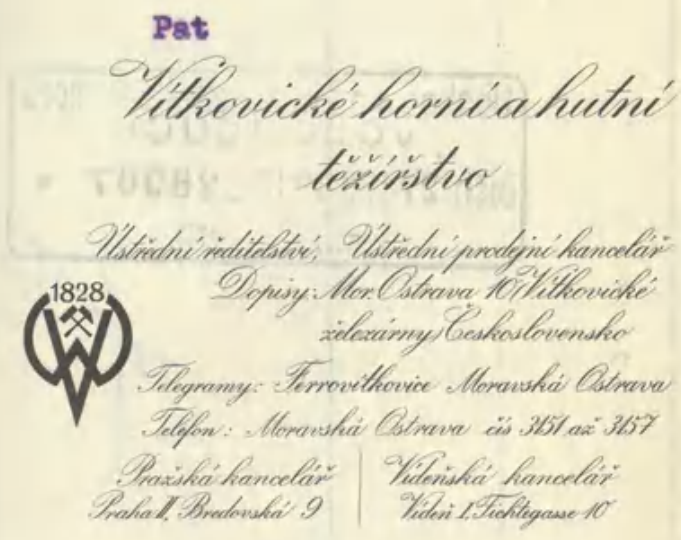 Pat
Vítkovické horní a hutní
těžířstvo
Ústřední ředitelství, Ústřední prodejní kancelář
Dopisy: Mor. Ostrava 10, Vítkovické
železárny, Československo
1828
Telegramy: Ferrovítkovice Moravská Ostrava
Telefon: Moravská Ostrava čís 3151 až 3157
Pražská kancelář
Praha II, Bredovská 9
Vídeňská kancelář
Vídeň I, Fichtegasse 10